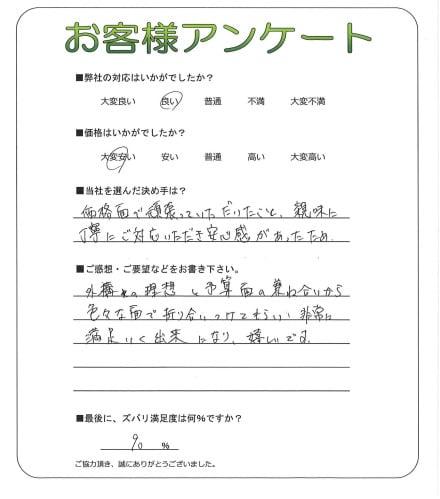 お客様アンケート
■弊社の対応はいかがでしたか？
大変良い 良い 普通 不満 大変不満
■価格はいかがでしたか？
大変安い 安い 普通 高い 大変高い
■当社を選んだ決め手は？
価格面で頑張っていただけたこと、親味に
丁寧にご対応いただき安心感があったため.
■ご感想・ご要望などをお書き下さい。
外構の理想と予算面の兼ね合いから
色々な面で折り合いつけてもらい非常に
満足いく出来になり、嬉しいです.
■最後に、ズバリ満足度は何%ですか？
90 %
ご協力頂き、誠にありがとうございました。